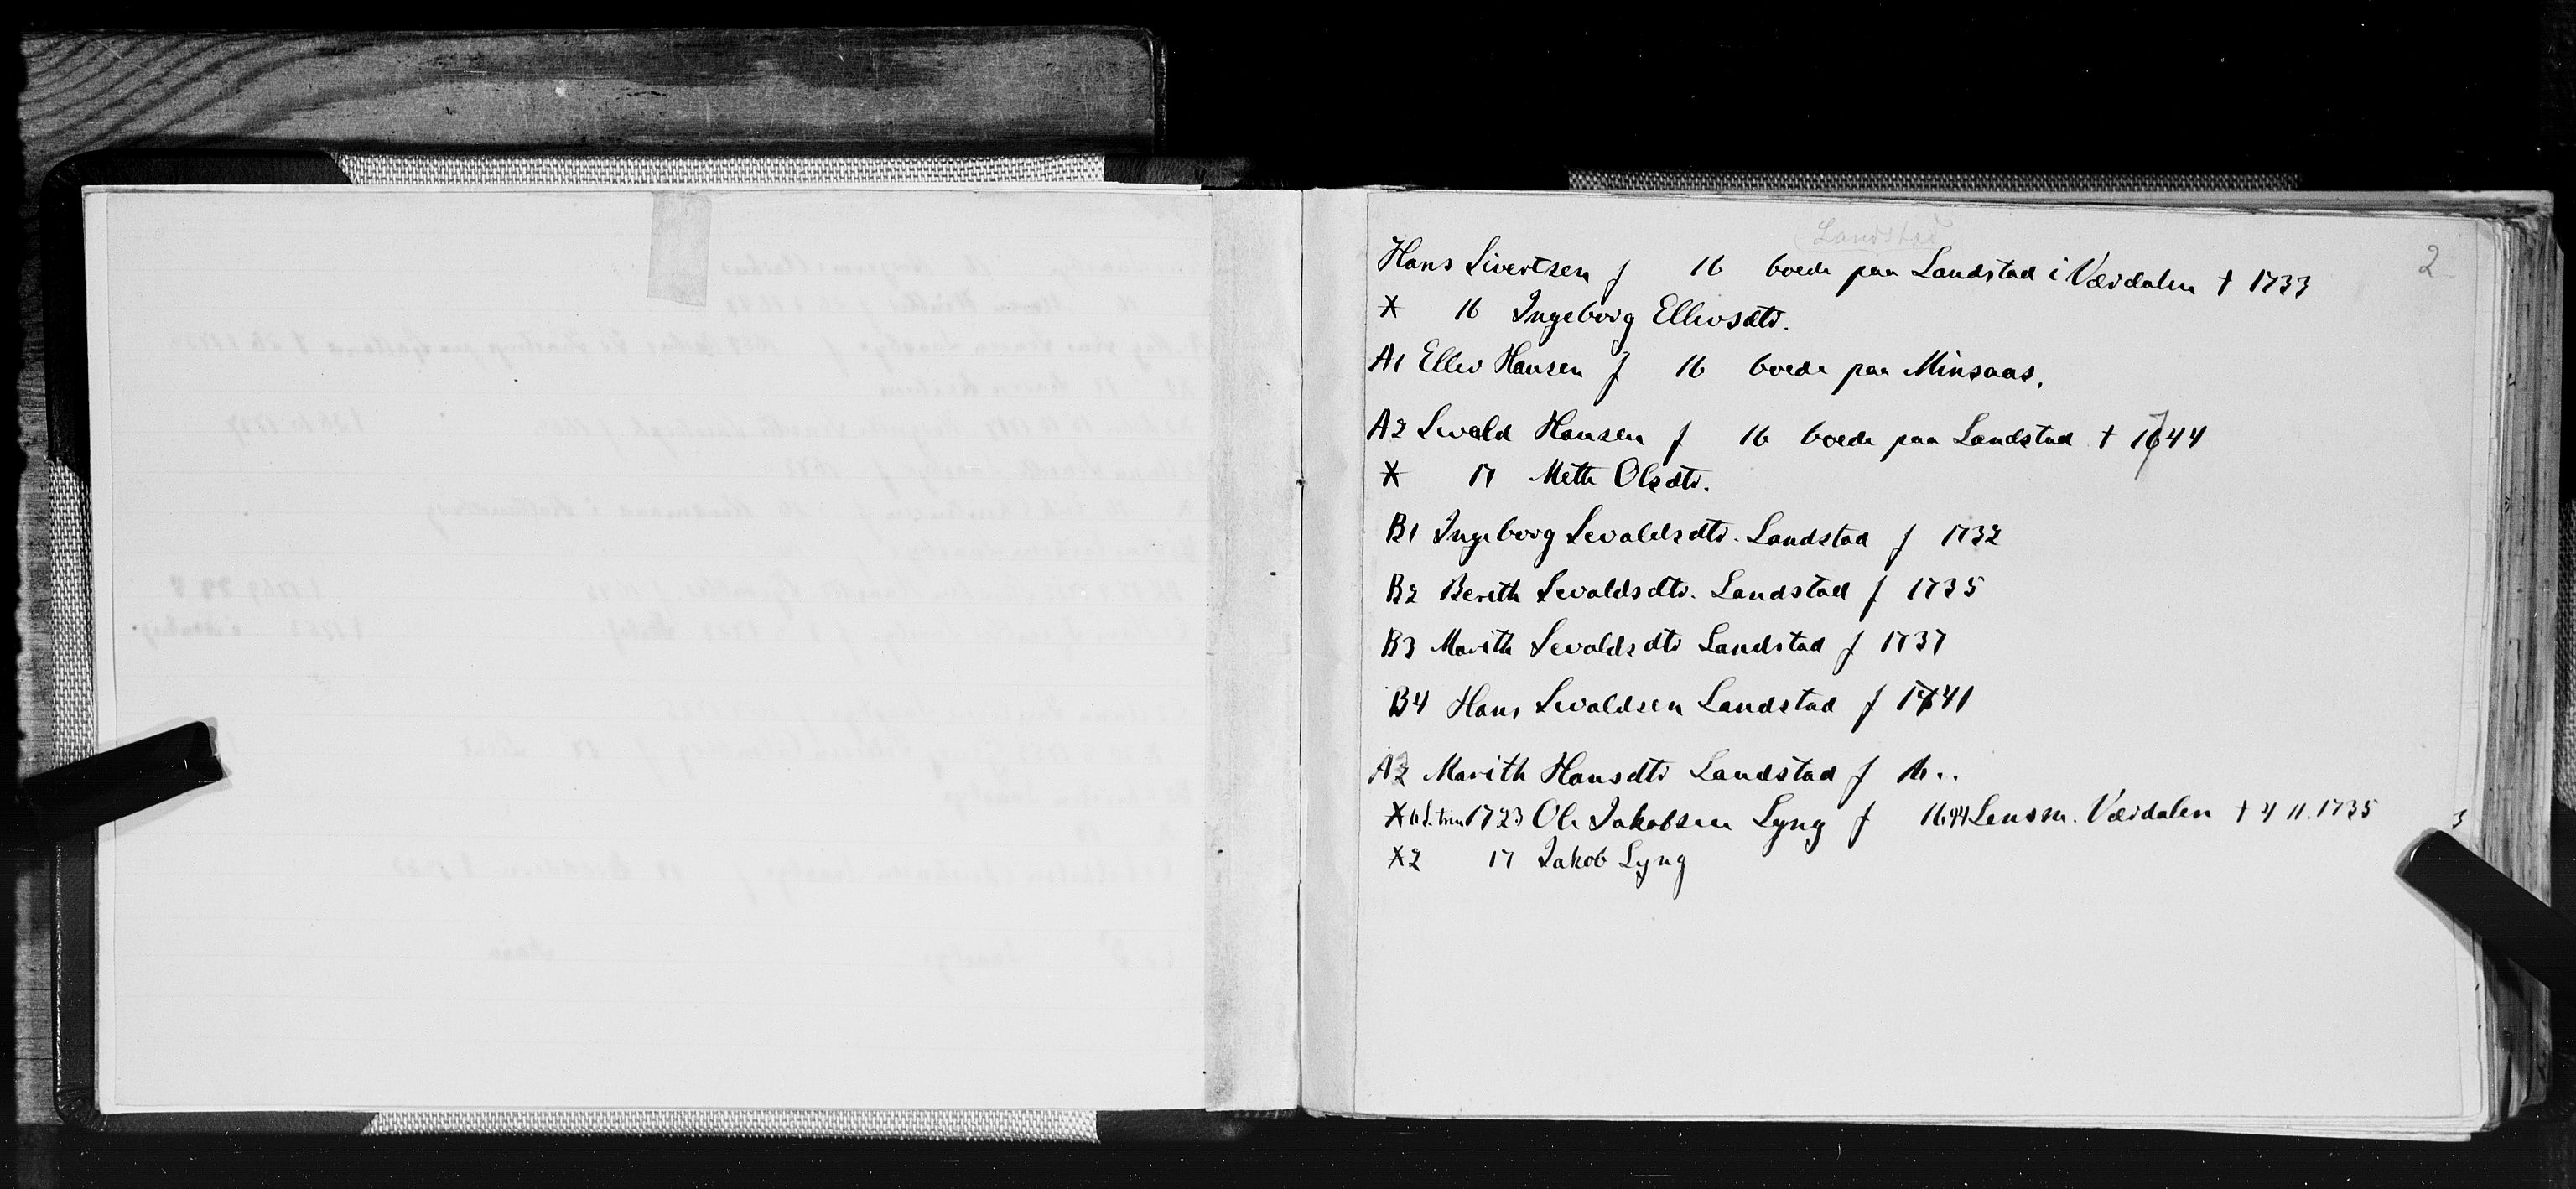 Landstad
2
Hans Sivertsen f 16 boede paa Landstad i Værdalen † 1733
X 16 Ingeborg Ellevsdtr.
A1 Ellev Hansen f 16 boede paa Minsaas.
A2 Sevald Hansen f 16 boede paa Landstad † 1744
X 17 Mette Olsdtr.
B1 Ingeborg Sevaldsdtr. Landstad f 1732
B2 Bereth Sevaldsdtr. Landstad f 1735
B3 Marith Sevaldsdtr Landstad f 1737
B4 Hans Sevaldsen Landstad f 1741
A3 Marith Hansdtr Landstad f 16..
X 1723 Ole Jakobsen Lyng f 1694 Lensm. Værdalen † 4 11. 1735 3
X2 17 Jakob Lyng